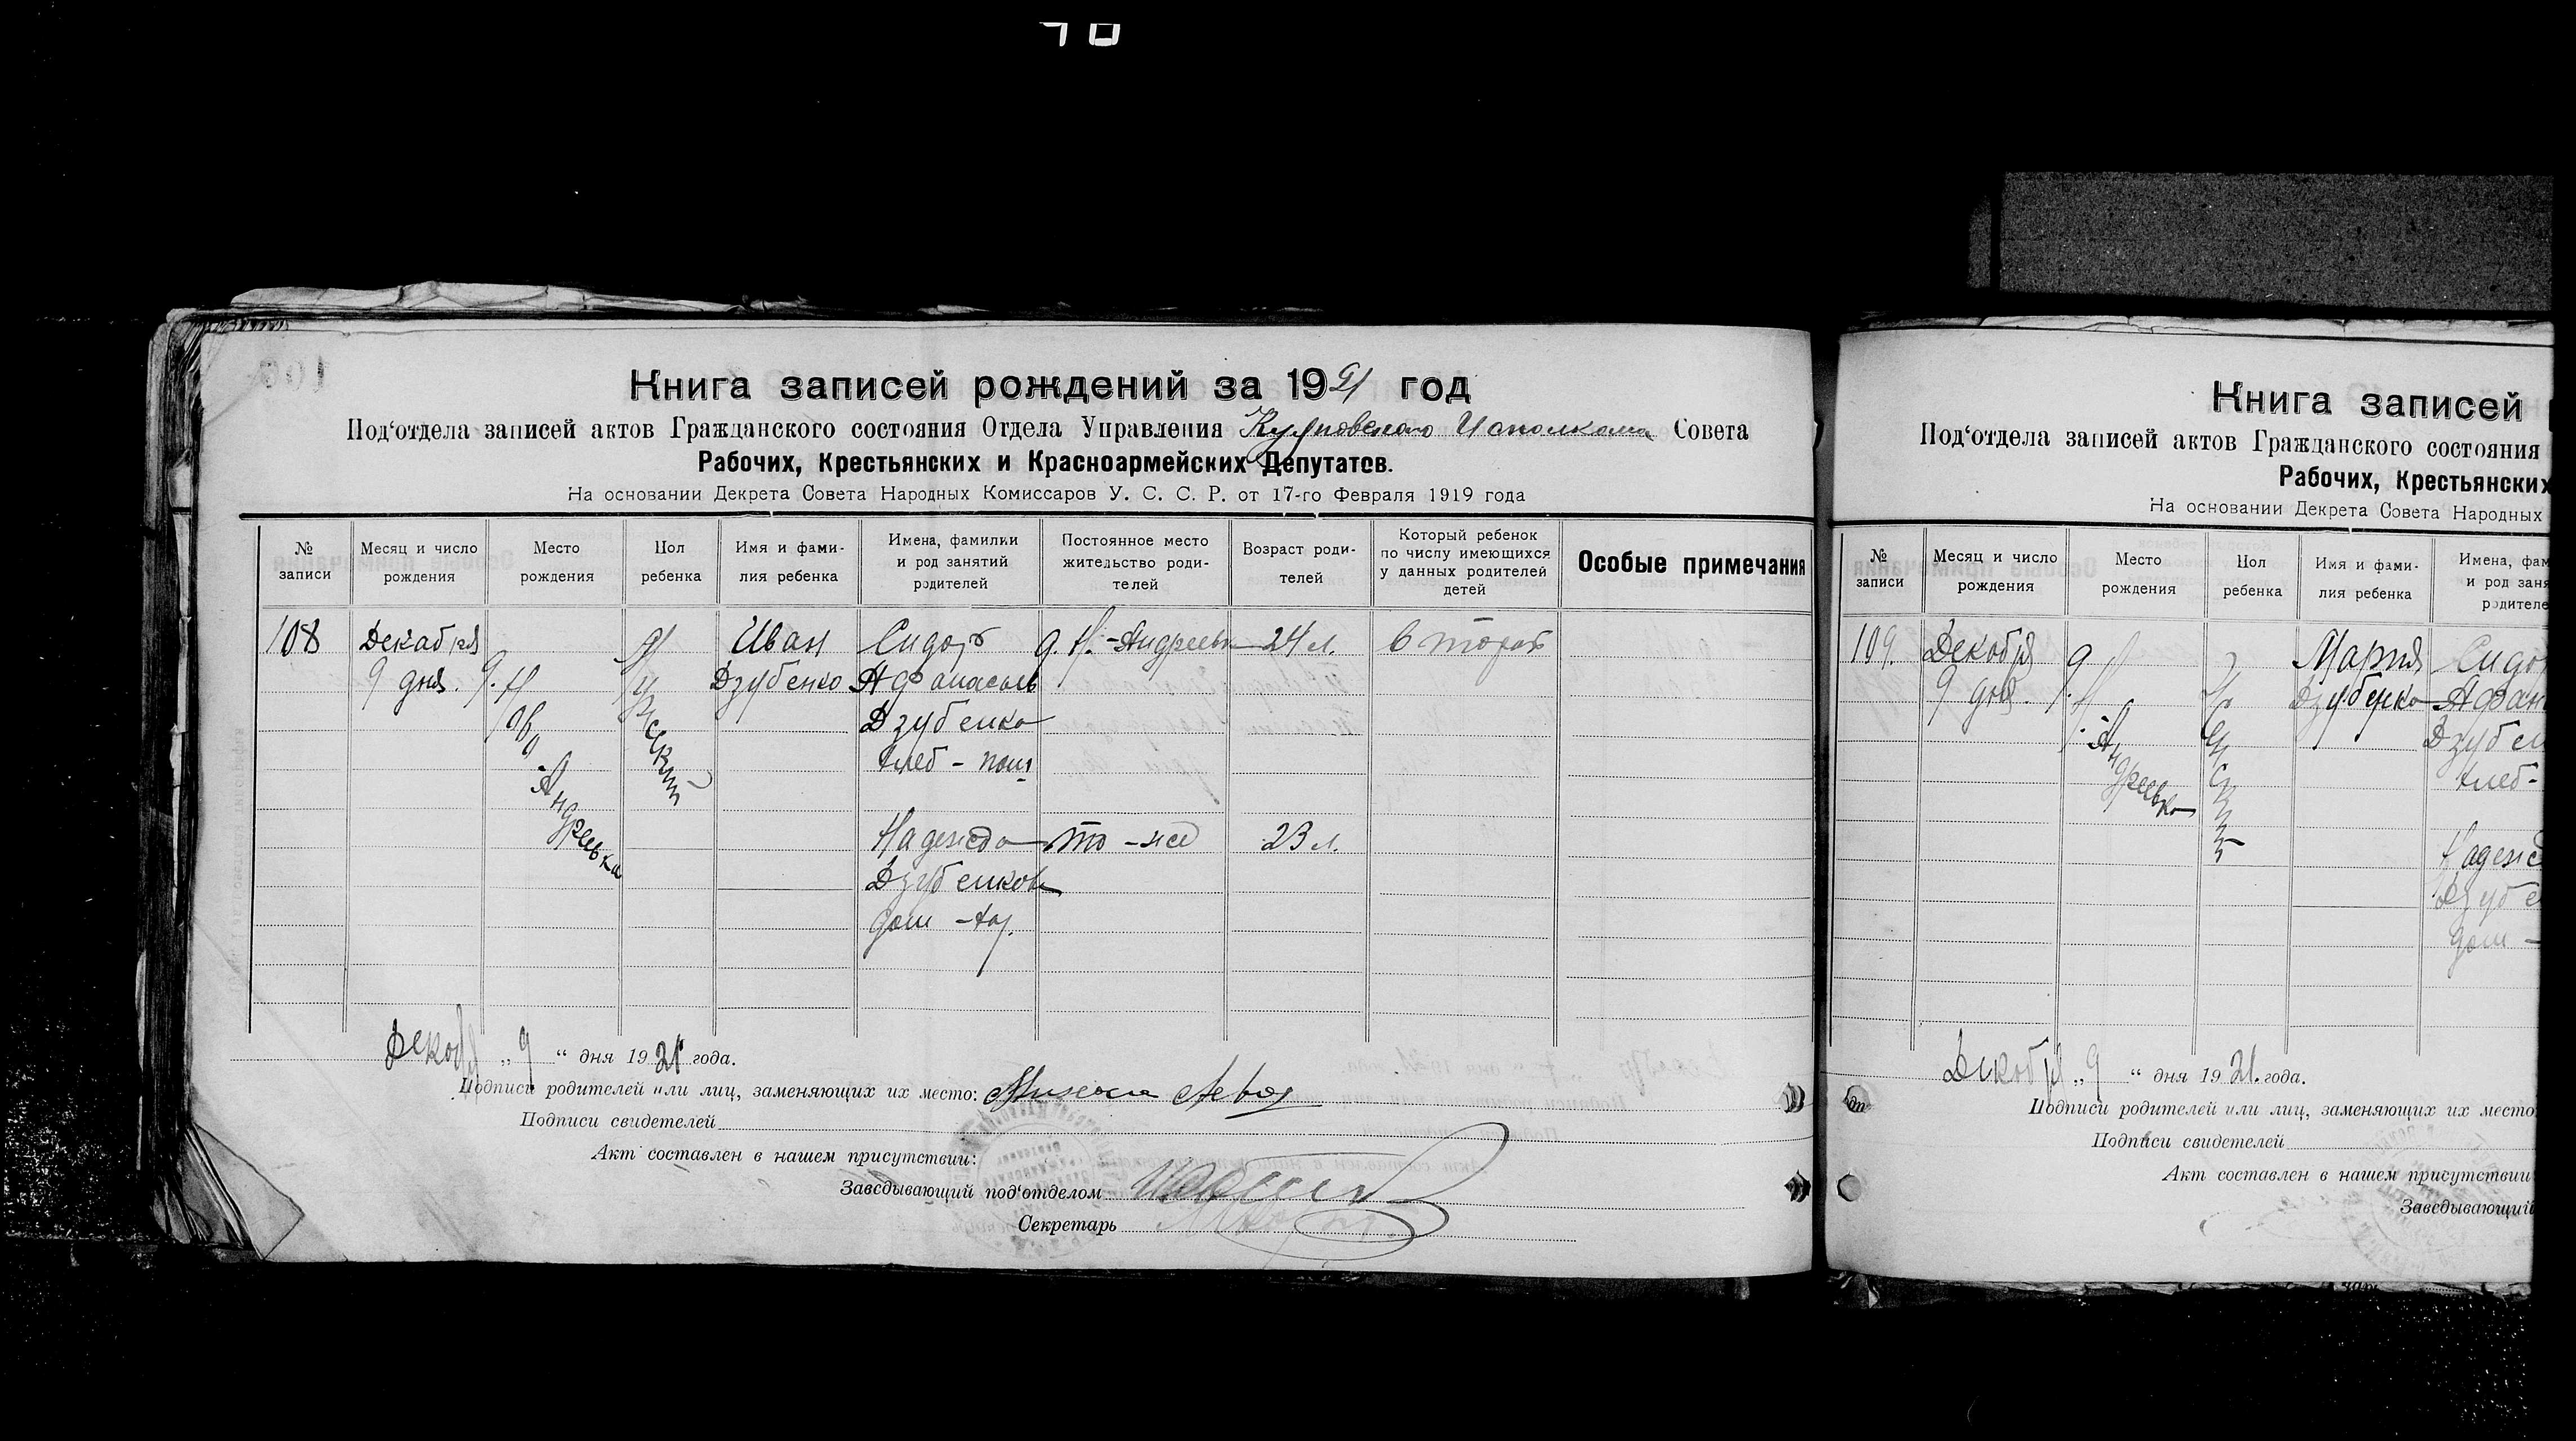 Книга записей рождений за 1921 год
Под'отдела записей актов Гражданского состояния Отдела Управления Исполкома Совета
Рабочих, Крестьянских и Красноармейских Депутатов.
На основании Декрета Совета Народных Комиссаров У. С. С. Р. от 17-го Февраля 1919 года
№ записи
Месяц и число рождения
Место рождения
Пол ребенка
Имя и фами-
лия ребенка
Имена, фамилии
и род занятий
родителей
Постоянное место
жительство роди-
телей
Возраст роди-
телей
Который ребенок
по числу имеющихся
у данных родителей
детей
Особые примечания
108
Декабря
9 дня.
д. Ново-Андреевка
Мужеский
Иван
Дзубенко
Сидор
Афанасьев
Дзубенко
хлеб-паш
д. Н.-Андреевк
24 л.
второй
Надежда
Дзубенков
дом-хоз.
то-же
23 л.
Декабр „9“ дня 1921 года.
Подписи родителей или лиц, заменяющих их место:
Подписи свидетелей
Акт составлен в нашем присутствии:
Заведывающий под'отделом
Секретарь
Книга записей
Под'отдела записей актов Гражданского состояния
Рабочих, Крестьянских
На основании Декрета Совета Народных
№ записи
Месяц и число
рождения
Место
рождения
Пол
ребенка
Имя и фами-
лия ребенка
Имена, фам
и род заня
родителе
109.
Декабря
9 дня.
Андреевка
Мария
Дзубенко
Сидо
Афан
Дзубен
хлеб-
Надежд
Дзубе
дом-
Декабря „9“ дня 1921. года.
Подписи родителей или лиц, заменяющих их место
Подписи свидетелей
Акт составлен в нашем присутствии
Заведывающий